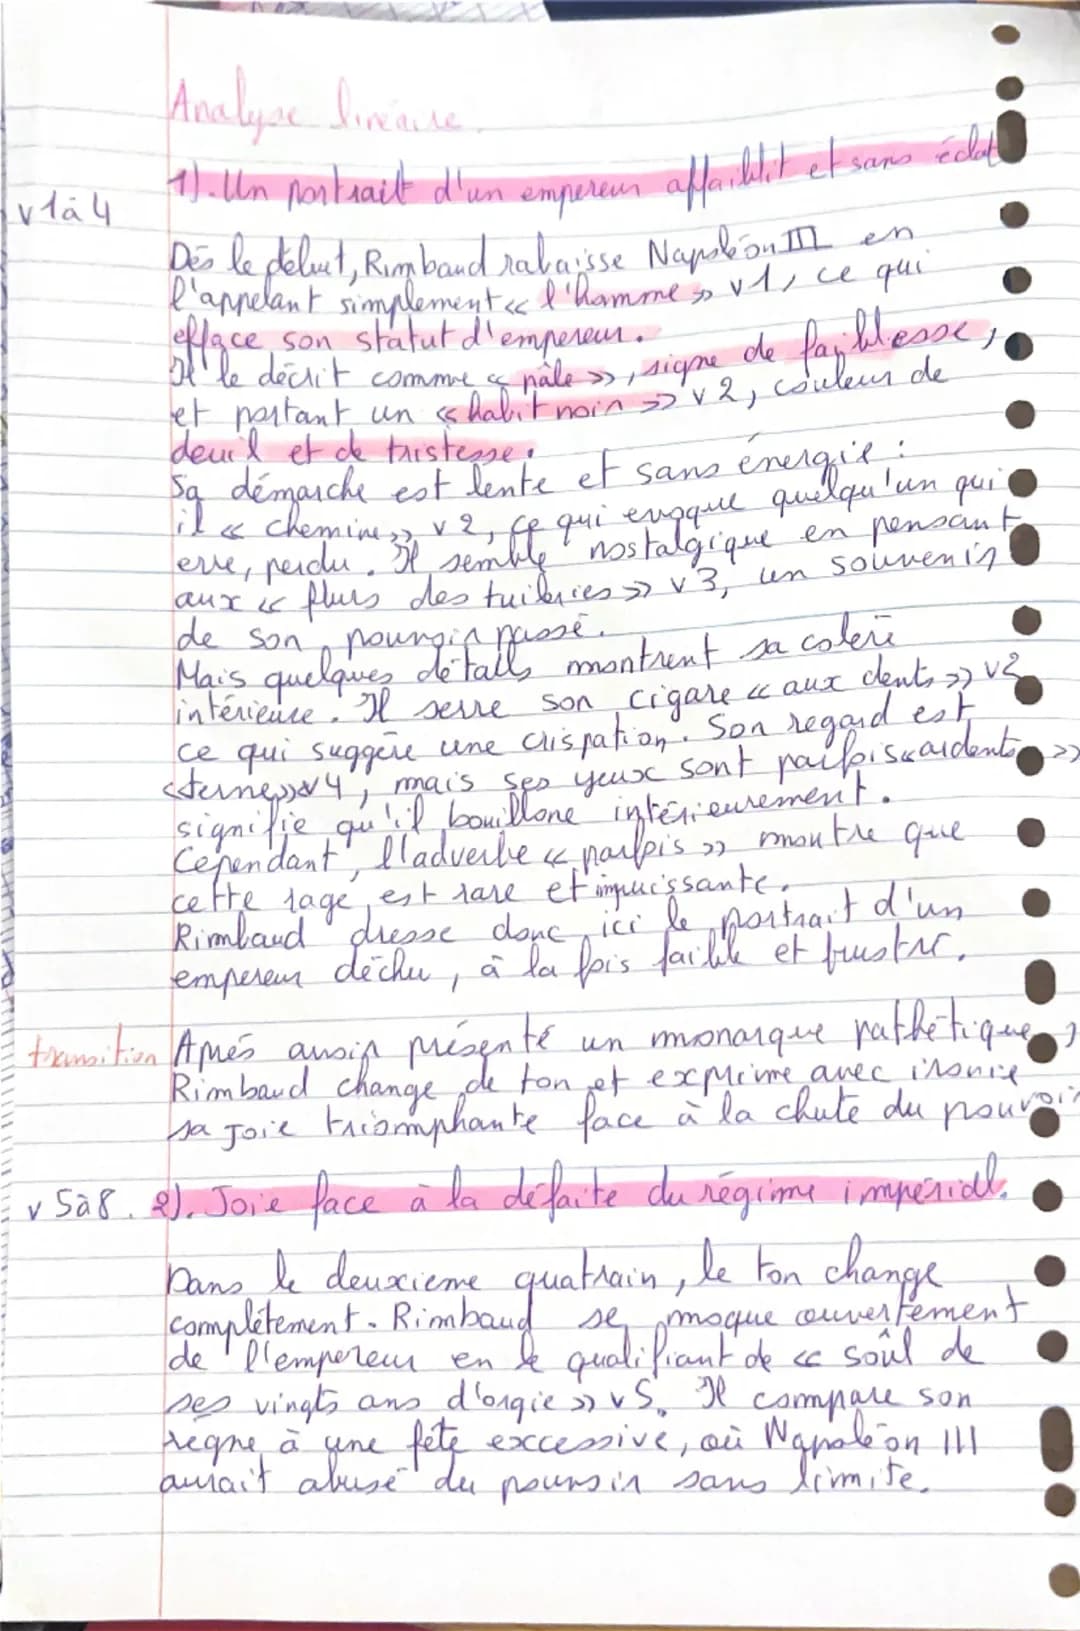 Analyse linéaire.
1). Un portrait d'un empereur affaiblit et sans éclat
v 1 à 4
Dès le début, Rimbaud rabaisse Napoléon III en
l'appelant simplement << l'homme >> v1, ce qui
efface son statut d'empereur.
Il le décrit comme << pâle >>, signe de faiblesse,
et portant un << habit noir >> v2, couleur de
deuil et de tristesse.
Sa démarche est lente et sans énergie :
il << chemine >> v2, ce qui evoque quelqu'un qui
erre, perdu. Il semble nostalgique en pensant
aux << flurs des tuileries >> v3, un souvenir
de son pouvoir passé.
Mais quelques détails montrent sa colere
intérieure. Il serre son cigare << aux dents >> v2
ce qui suggère une crispation. Son regard est
<<terne>> v4, mais ses yeux sont parfois <<ardents>>
signifie qu'il bouillone intérieurement.
Cependant, l'adverbe << parfois >> montre que
cette rage est rare et impuissante.
Rimbaud dresse donc ici le portrait d'un
empereur déchu, à la fois faible et frustré.
transition Après avoir présenté un monarque pathétique,
Rimbaud change de ton et exprime avec ironie
sa joie triomphante face à la chute du pouvoir
v 5 à 8. 2). Joie face à la défaite du régime impérial.
Dans le deuxieme quatrain, le ton change
complétement. Rimbaud se moque ouvertement
de l'empereur en le qualifiant de << soûl de
ses vingts ans d'orgie >> v5. Il compare son
regne à une fête excessive, où Napoléon III
aurait abusé du pouvoir sans limite.